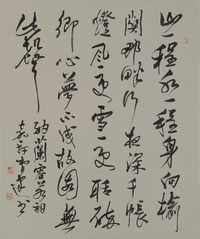 山一程水一程身向榆
關那畔行夜深千帳
燈風一更雪一更聒碎
鄉心夢不成故園無
此聲
納蘭容若詞
書